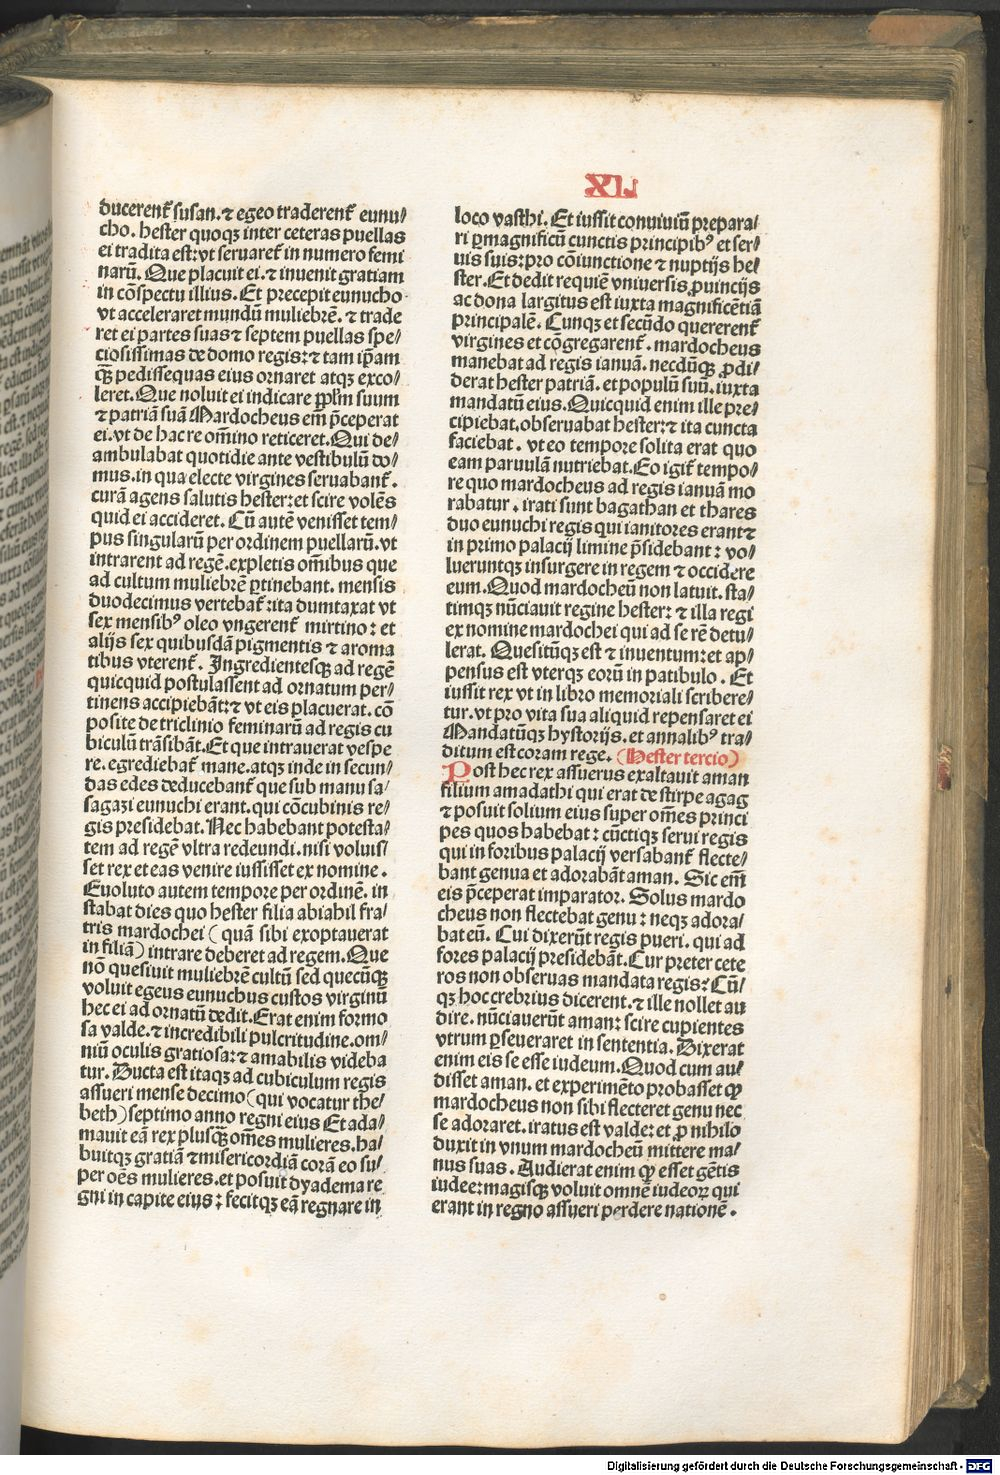 XL
ducerent᷑ susan. ⁊ egeo traderent᷑ eunu/
cho. hester quoqꝫ inter ceteras puellas
ei tradita est: vt seruaret᷑ in numero femi
narū. Que placuit ei. ⁊ inuenit gratiam
in cōspectu illius. Et precepit eunucho
vt acceleraret mundū muliebrē. ⁊ trade
ret ei partes suas ⁊ septem puellas spe/
ciosissimas de domo regis: ⁊ tam ip̄am
qȝ̄ pedissequas eius ornaret atqꝫ exco/
leret. Que noluit ei indicare pp̄lm suum
⁊ patriā suā Mardocheus em̄ p̄ceperat
ei. vt de hac re om̄ino reticeret. Qui de/
ambulabat quotidie ante vestibulū do/
mus. in qua electe virgines seruabant᷑.
curā agens salutis hester: et scire volēs
quid ei accideret. Cū autē venisset tem/
pus singularū per ordinem puellarū. vt
intrarent ad regē. expletis om̄ibus que
ad cultum muliebrē ꝑtinebant. mensis
duodecimus vertebat᷑: ita dumtaxat vt
sex mensibꝰ oleo vngerent᷑ mirtino: et
alijs sex quibusdā pigmentis ⁊ aroma
tibus vterent᷑. Ingredientesqꝫ ad regē
quicquid postulassent ad ornatum per/
tinens accipiebāt: ⁊ vt eis placuerat. cō
posite de triclinio feminarū ad regis cu
biculū trāsibāt. Et que intrauerat vespe
re. egrediebat᷑ mane. atqꝫ inde in secun/
das edes deducebant᷑ que sub manu sa/
sagazi eunuchi erant. qui cōcubinis re/
gis presidebat. Nec habebant potesta/
tem ad regē vltra redeundi. nisi voluis/
set rex et eas venire iussisset ex nomine.
Euoluto autem tempore per ordinē. in
stabat dies quo hester filia abiahil fra/
tris mardochei (quā sibi exoptauerat
in filiā) intrare deberet ad regem. Que
nō quesiuit muliebrē cultū sed quecūqꝫ
voluit egeus eunuchus custos virginū
hec ei ad ornatū dedit. Erat enim formo
sa valde. ⁊ incredibili pulcritudine. om/
niū oculis gratiosa: ⁊ amabilis videba
tur. Ducta est itaqꝫ ad cubiculum regis
assueri mense decimo (qui vocatur the/
beth) septimo anno regni eius Et ada/
mauit eā rex plusqȝ̄ om̄es mulieres. ha/
buitqꝫ gratiā ⁊ misericordiā corā eo su/
per oēs mulieres. et posuit dyadema re
gni in capite eius: fecitqꝫ eā regnare in
loco vasthi. Et iussit conuiuiū prepara/
ri ꝑmagnificū cunctis principibꝰ et ser/
uis suis: pro cōiunctione ⁊ nuptijs he/
ster. Et dedit requiē vniuersis ꝓuincijs
ac dona largitus est iuxta magnificētiā
principalē. Cunqꝫ et secūdo quererent᷑
virgines et cōgregarent᷑. mardocheus
manebat ad regis ianuā. necdūqꝫ ꝓdi/
derat hester patriā. et populū suū. iuxta
mandatū eius. Quicquid enim ille pre/
cipiebat. obseruabat hester: ⁊ ita cuncta
faciebat. vt eo tempore solita erat quo
eam paruulā nutriebat. Eo igit᷑ tempo/
re quo mardocheus ad regis ianuā mo
rabatur. irati sunt bagathan et thares
duo eunuchi regis qui ianitores erant ⁊
in primo palacij limine p̄sidebant: vo/
lueruntqꝫ insurgere in regem ⁊ occidere
eum. Quod mardocheū non latuit. sta/
timqꝫ nūciauit regine hester: ⁊ illa regi
ex nomine mardochei qui ad se rē detu/
lerat. Quesitūqꝫ est ⁊ inuentum: et ap/
pensus est vterqꝫ eorū in patibulo. Et
iussit rex vt in libro memoriali scribere/
tur. vt pro vita sua aliquid repensaret ei
Mandatūqꝫ hystorijs. et annalibꝰ tra/
ditum est coram rege. (Hester tercio)
Post hec rex assuerus exaltauit aman
filium amadathi qui erat de stirpe agag
⁊ posuit solium eius super om̄es princi
pes quos habebat: cūctiqꝫ serui regis
qui in foribus palacij versabant᷑ flecte/
bant genua et adorabāt aman. Sic em̄
eis p̄ceperat imparator. Solus mardo
cheus non flectebat genu: neqꝫ adora/
bat eū. Cui dixerūt regis pueri. qui ad
fores palacij presidebāt. Cur preter cete
ros non obseruas mandata regis? Cū/
qꝫ hoc crebrius dicerent. ⁊ ille nollet au
dire. nūciauerūt aman: scire cupientes
vtrum ꝑseueraret in sententia. Dixerat
enim eis se esse iudeum. Quod cum au/
disset aman. et experimēto probasset ꝙ
mardocheus non sibi flecteret genu nec
se adoraret. iratus est valde: et ꝓ nihilo
duxit in vnum mardocheū mittere ma/
nus suas. Audierat enim ꝙ esset gētis
iudee: magisqꝫ voluit omnē iudeoꝝ qui
erant in regno assueri perdere nationē.
Digitalisierung gefördert durch die Deutsche Forschungsgemeinschaft - DFG